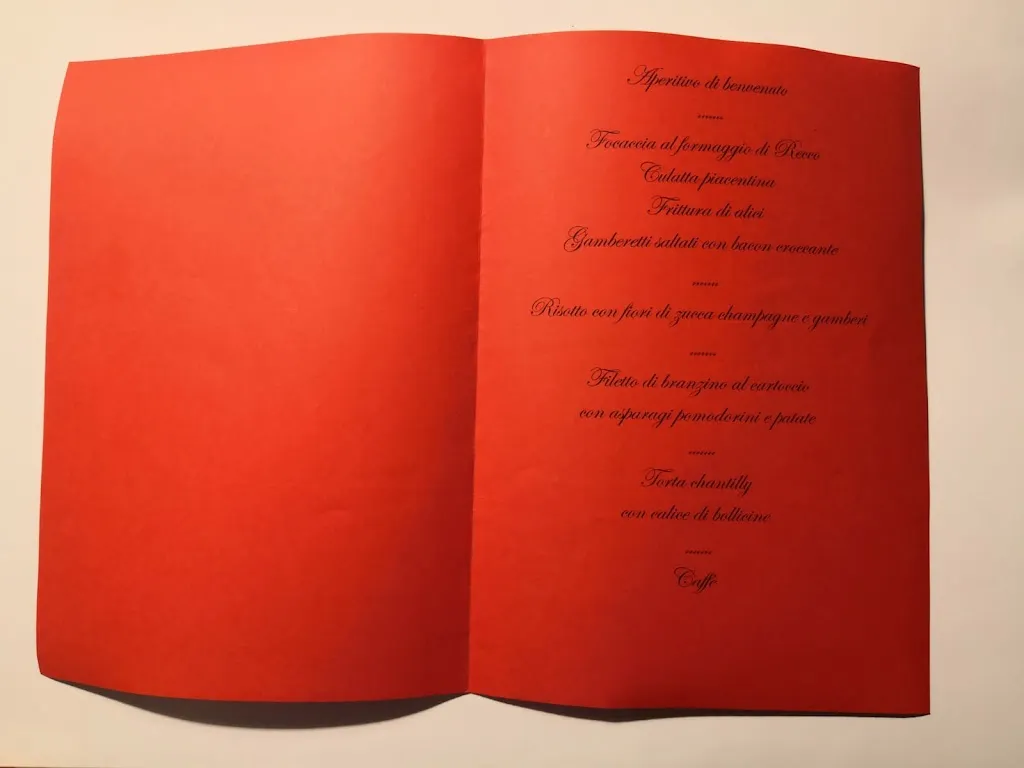 Aperitivo di benvenuto
.......
Focaccia al formaggio di Recco
Culatta piacentina
Frittura di alici
Gamberetti saltati con bacon croccante
.......
Risotto con fiori di zucca champagne e gamberi
.......
Filetto di branzino al cartoccio
con aspuragi pomodorini e patate
.......
Torta chantilly
con calice di bollicine
.......
Caffè